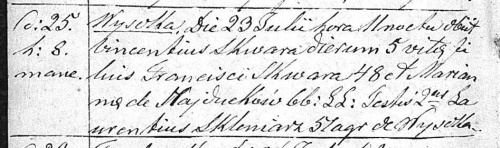 Co: 25. Wysotka. Die 23 Julii hora 11 noctu obiit
h: 8. Vincentius Skwara dierum 5 vitię fi
mane. lius Francisci Skwara 48 et Marian
nę de Hajduckow bb: LL: Testis 2us La
urentius Skleniarz 57 agr de Wysotka.